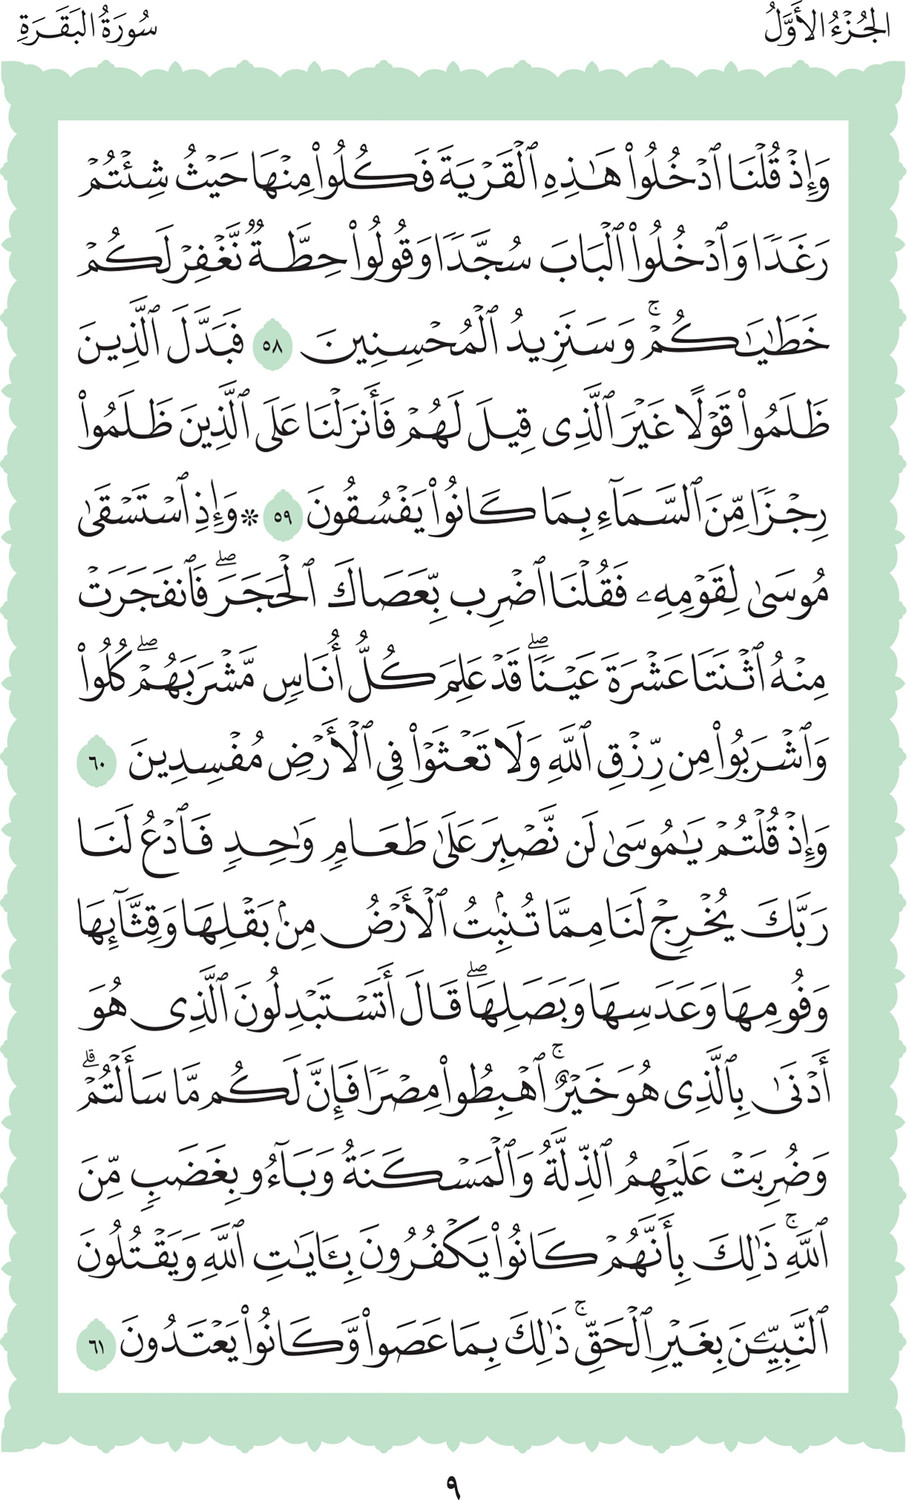 الجُزْءُ الأَوَّلُ
سُورَةُ البَقَرَةِ
وَإِذۡ قُلۡنَا ٱدۡخُلُواْ هَٰذِهِ ٱلۡقَرۡيَةَ فَكُلُواْ مِنۡهَا حَيۡثُ شِئۡتُمۡ
رَغَدٗا وَٱدۡخُلُواْ ٱلۡبَابَ سُجَّدٗا وَقُولُواْ حِطَّةٞ نَّغۡفِرۡ لَكُمۡ
خَطَٰيَٰكُمۡۚ وَسَنَزِيدُ ٱلۡمُحۡسِنِينَ ٥٨ فَبَدَّلَ ٱلَّذِينَ
ظَلَمُواْ قَوۡلًا غَيۡرَ ٱلَّذِي قِيلَ لَهُمۡ فَأَنزَلۡنَا عَلَى ٱلَّذِينَ ظَلَمُواْ
رِجۡزٗا مِّنَ ٱلسَّمَآءِ بِمَا كَانُواْ يَفۡسُقُونَ ٥٩ * وَإِذِ ٱسۡتَسۡقَىٰ
مُوسَىٰ لِقَوۡمِهِۦ فَقُلۡنَا ٱضۡرِب بِّعَصَاكَ ٱلۡحَجَرَۖ فَٱنفَجَرَتۡ
مِنۡهُ ٱثۡنَتَا عَشۡرَةَ عَيۡنٗاۖ قَدۡ عَلِمَ كُلُّ أُنَاسٖ مَّشۡرَبَهُمۡۖ كُلُواْ
وَٱشۡرَبُواْ مِن رِّزۡقِ ٱللَّهِ وَلَا تَعۡثَوۡاْ فِي ٱلۡأَرۡضِ مُفۡسِدِينَ ٦٠
وَإِذۡ قُلۡتُمۡ يَٰمُوسَىٰ لَن نَّصۡبِرَ عَلَىٰ طَعَامٖ وَٰحِدٖ فَٱدۡعُ لَنَا
رَبَّكَ يُخۡرِجۡ لَنَا مِمَّا تُنۢبِتُ ٱلۡأَرۡضُ مِنۢ بَقۡلِهَا وَقِثَّآئِهَا
وَفُومِهَا وَعَدَسِهَا وَبَصَلِهَاۖ قَالَ أَتَسۡتَبۡدِلُونَ ٱلَّذِي هُوَ
أَدۡنَىٰ بِٱلَّذِي هُوَ خَيۡرٌۚ ٱهۡبِطُواْ مِصۡرٗا فَإِنَّ لَكُم مَّا سَأَلۡتُمۡۗ
وَضُرِبَتۡ عَلَيۡهِمُ ٱلذِّلَّةُ وَٱلۡمَسۡكَنَةُ وَبَآءُو بِغَضَبٖ مِّنَ
ٱللَّهِۚ ذَٰلِكَ بِأَنَّهُمۡ كَانُواْ يَكۡفُرُونَ بِـَٔايَٰتِ ٱللَّهِ وَيَقۡتُلُونَ
ٱلنَّبِيِّـۧنَ بِغَيۡرِ ٱلۡحَقِّۚ ذَٰلِكَ بِمَا عَصَواْ وَّكَانُواْ يَعۡتَدُونَ ٦١
٩